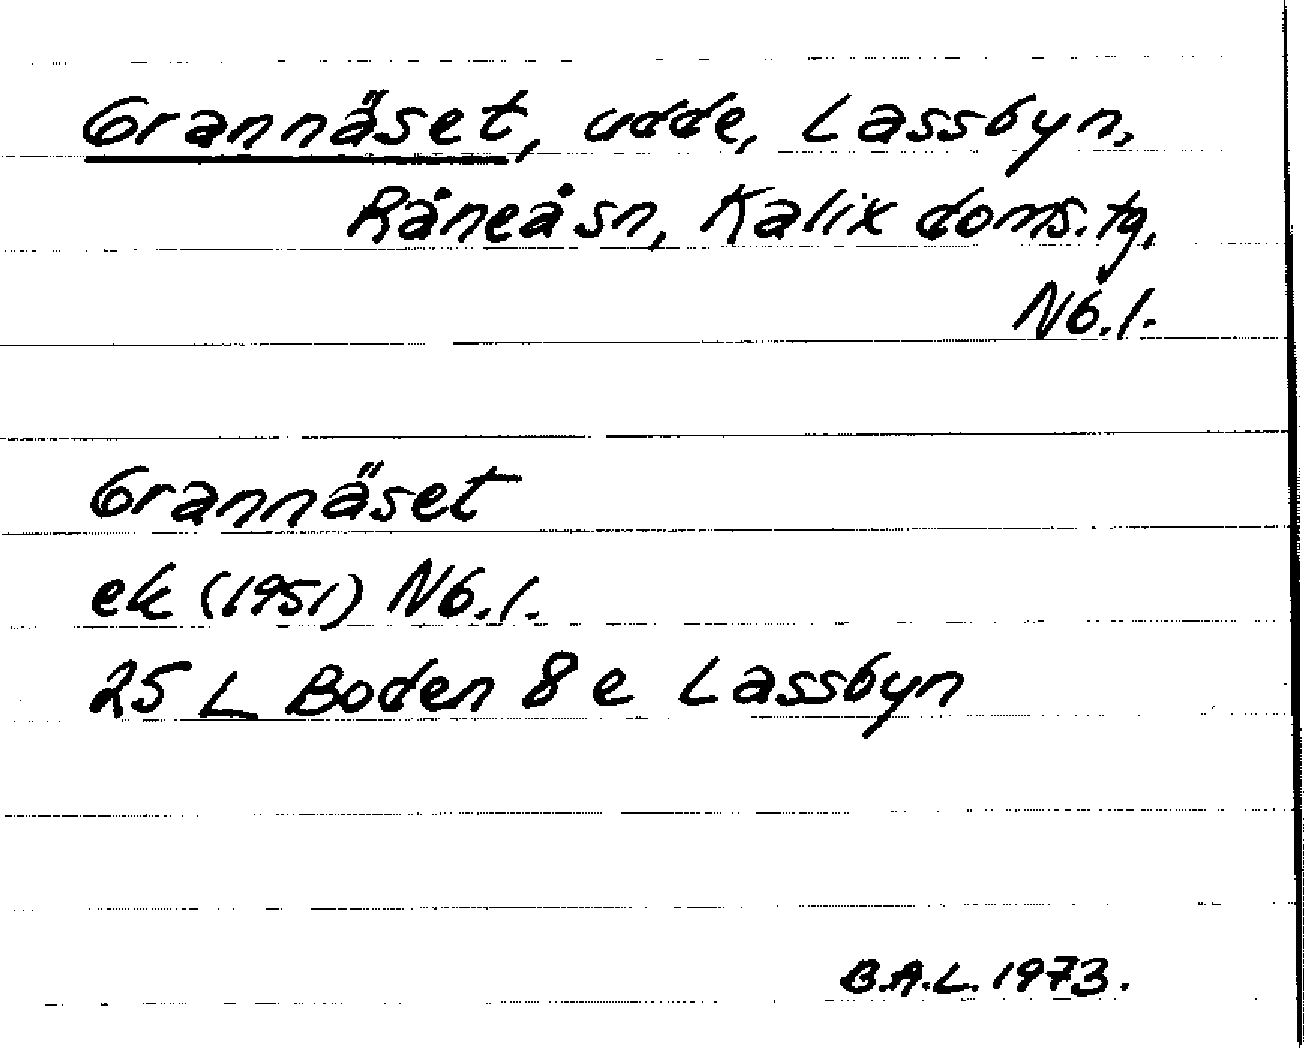 Grannäset, udde, Lassbyn,
Råneå sn, Kalix doms.tg,
Nb.l.
Grannäset
ek (1951) Nb.l.
25 L Boden 8 e Lassbyn
B.A.L. 1973.